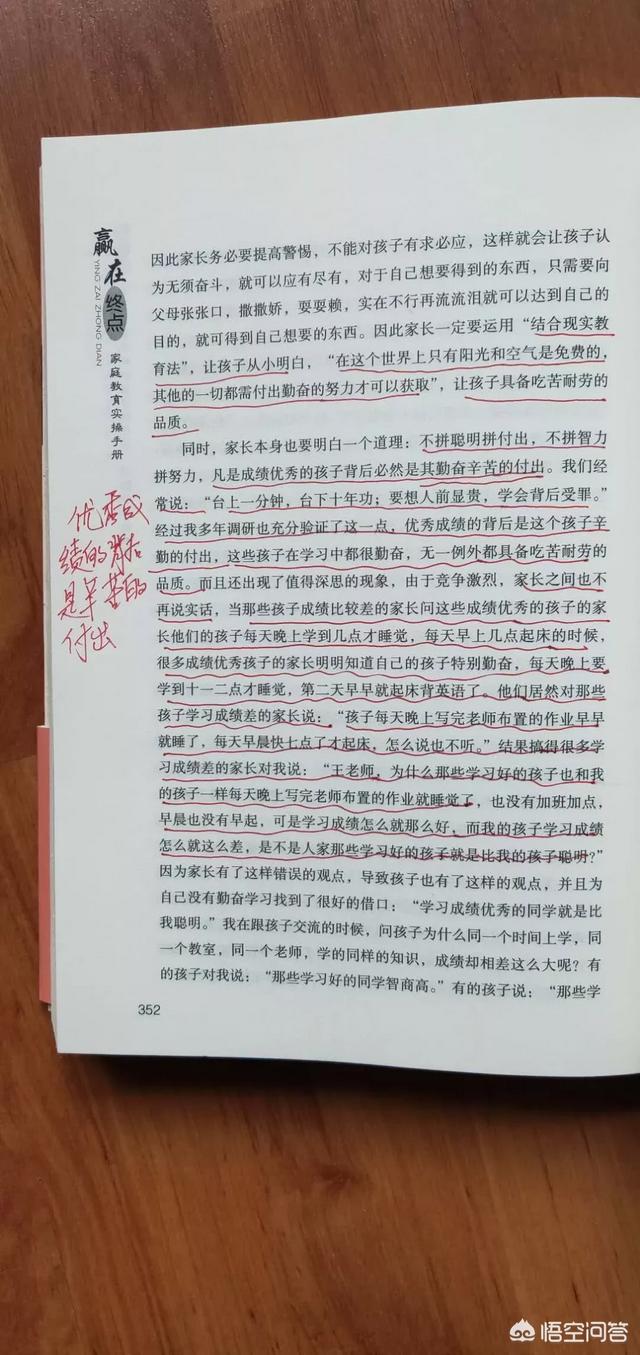 赢在终点
YING ZAI ZHONG DIAN
家庭教育实操手册
因此家长务必要提高警惕，不能对孩子有求必应，这样就会让孩子认
为无须奋斗，就可以应有尽有，对于自己想要得到的东西，只需要向
父母张张口，撒撒娇，耍耍赖，实在不行再流流泪就可以达到自己的
目的，就可得到自己想要的东西。因此家长一定要运用“结合现实教
育法”，让孩子从小明白，“在这个世界上只有阳光和空气是免费的，
其他的一切都需付出勤奋的努力才可以获取”，让孩子具备吃苦耐劳的
品质。
同时，家长本身也要明白一个道理：不拼聪明拼付出，不拼智力
拼努力，凡是成绩优秀的孩子背后必然是其勤奋辛苦的付出。我们经
常说：“台上一分钟，台下十年功；要想人前显贵，学会背后受罪。”
经过我多年调研也充分验证了这一点，优秀成绩的背后是这个孩子辛
勤的付出，这些孩子在学习中都很勤奋，无一例外都具备吃苦耐劳的
品质。而且还出现了值得深思的现象，由于竞争激烈，家长之间也不
再说实话，当那些孩子成绩比较差的家长问这些成绩优秀的孩子的家
长他们的孩子每天晚上学到几点才睡觉，每天早上几点起床的时候，
很多成绩优秀孩子的家长明明知道自己的孩子特别勤奋，每天晚上要
学到十一二点才睡觉，第二天早早就起床背英语了。他们居然对那些
孩子学习成绩差的家长说：“孩子每天晚上写完老师布置的作业早早
就睡了，每天早晨快七点了才起床，怎么说也不听。”结果搞得很多学
习成绩差的家长对我说：“王老师，为什么那些学习好的孩子也和我
的孩子一样每天晚上写完老师布置的作业就睡觉了，也没有加班加点，
早晨也没有早起，可是学习成绩怎么就那么好，而我的孩子学习成绩
怎么就这么差，是不是人家那些学习好的孩子就是比我的孩子聪明？”
因为家长有了这样错误的观点，导致孩子也有了这样的观点，并且为
自己没有勤奋学习找到了很好的借口：“学习成绩优秀的同学就是比
我聪明。”我在跟孩子交流的时候，问孩子为什么同一个时间上学，同
一个教室，同一个老师，学的同样的知识，成绩却相差这么大呢？有
的孩子对我说：“那些学习好的同学智商高。”有的孩子说：“那些学
352
优秀成
绩的背后
是辛苦的
付出
悟空问答